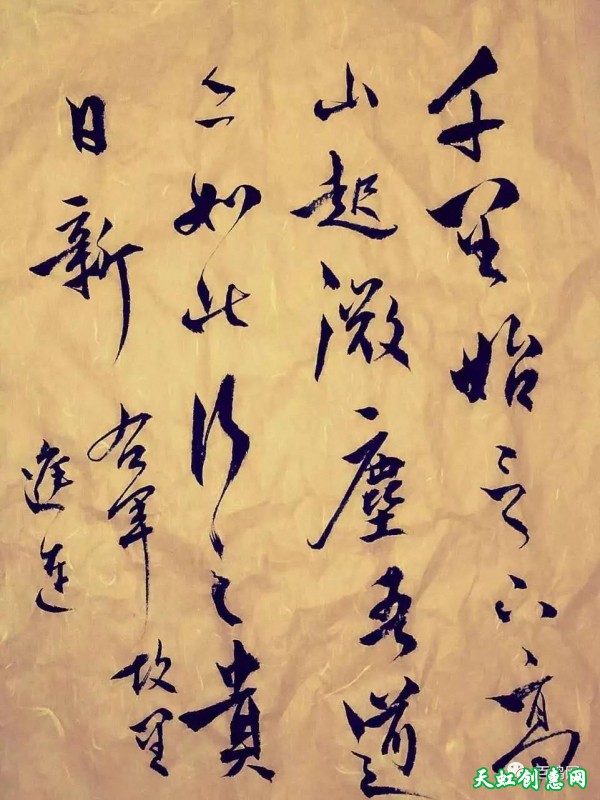 千里始足下高
山起微塵吾道
亦如此行之貴
日新
右军故里
進
天虹创惠网